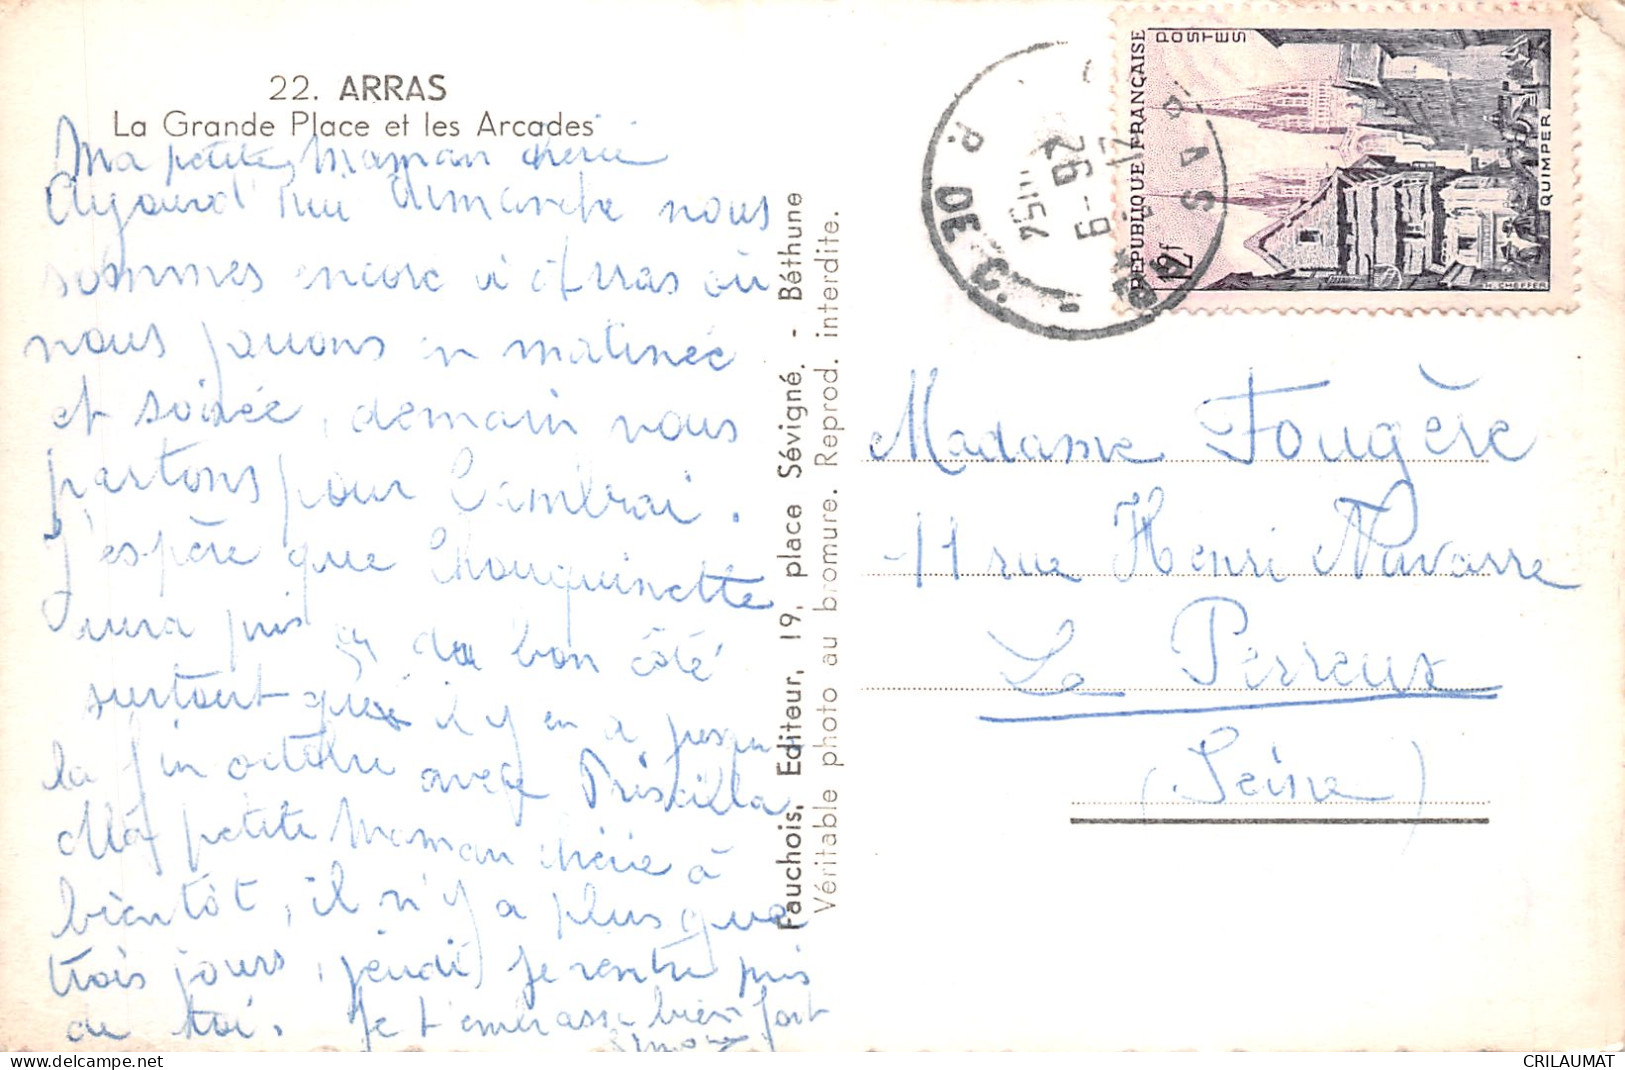 22. ARRAS
La Grande Place et les Arcades
Ma petite Maman chérie
Aujourd'hui dimanche nous
sommes encore à Arras où
nous jouons en matinée
et soirée, demain nous
partons pour Cambrai.
J'espère que Chouquinette
aura pris du bon côté
surtout que il y en a jusqu'
la fin octobre avec Priscilla
Ma petite Maman chérie à
bientôt, il n'y a plus que
trois jours, jeudi je rentre près
de toi. Je t'embrasse bien fort
Simone
Fauchois, Editeur, 19, place Sévigné. - Béthune
Véritable photo au bromure. Reprod. interdite.
RÉPUBLIQUE FRANÇAISE
POSTES
12f
QUIMPER
H. CHEFFER
P. DE C.
Madame Fougère
11 rue Henri Navarre
Le Perreux
(Seine)
www.delcampe.net
CRILAUMAT